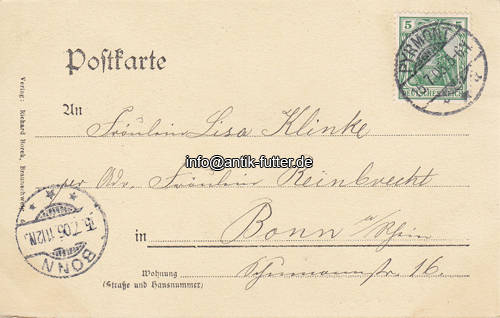 Postkarte
5 5
DEUTSCHES REICH
PYRMONT
An
Fräulein Lisa Klinke
per Adr. Fräulein Reinbrecht
in Bonn a/Rhein
Wohnung
(Straße und Hausnummer)
Schumannstr. 16.
BONN
Verlag: Richard Borek, Braunschweig
info@antik-futter.de